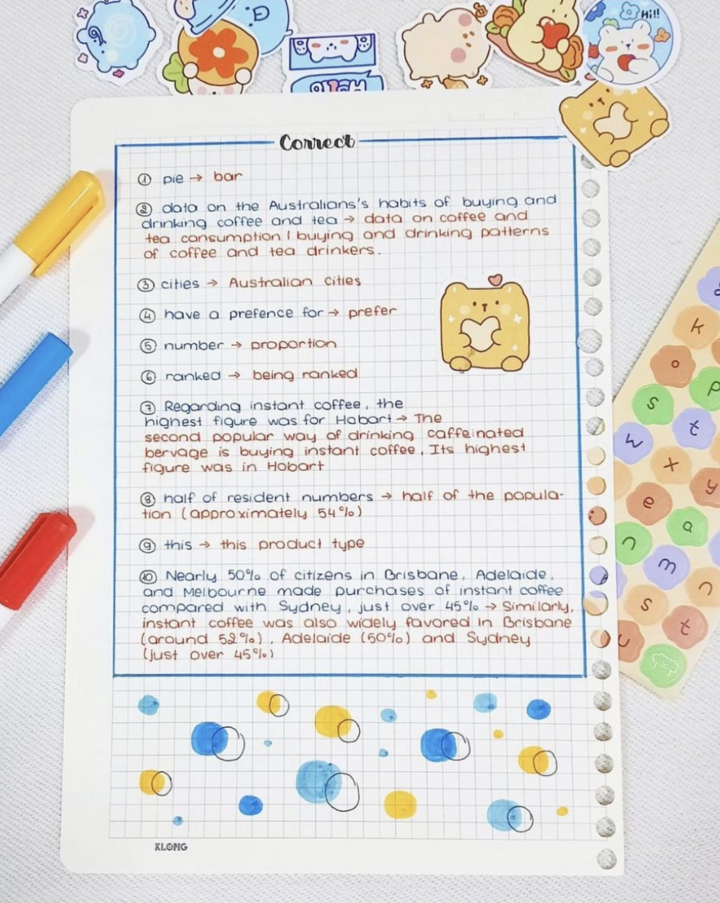 Hi!!
Correct
① pie → bar
② data on the Australians's habits of buying and
drinking coffee and tea → data on coffee and
tea consumption / buying and drinking patterns
of coffee and tea drinkers.
③ cities → Australian cities
④ have a prefence for → prefer
⑤ number → proportion
⑥ ranked → being ranked
⑦ Regarding instant coffee, the
highest figure was for Hobart → The
second popular way of drinking caffeinated
bervage is buying instant coffee. Its highest
figure was in Hobart
⑧ half of resident numbers → half of the popula-
tion (approximately 54%)
⑨ this → this product type
⑩ Nearly 50% of citizens in Brisbane, Adelaide,
and Melbourne made purchases of instant coffee
compared with Sydney, just over 45% → Similarly,
instant coffee was also widely favored in Brisbane
(around 52%), Adelaide (50%) and Sydney
(just over 45%)
k
o p
s t
w
x y
e a
n m
n
s t
u
KLONG